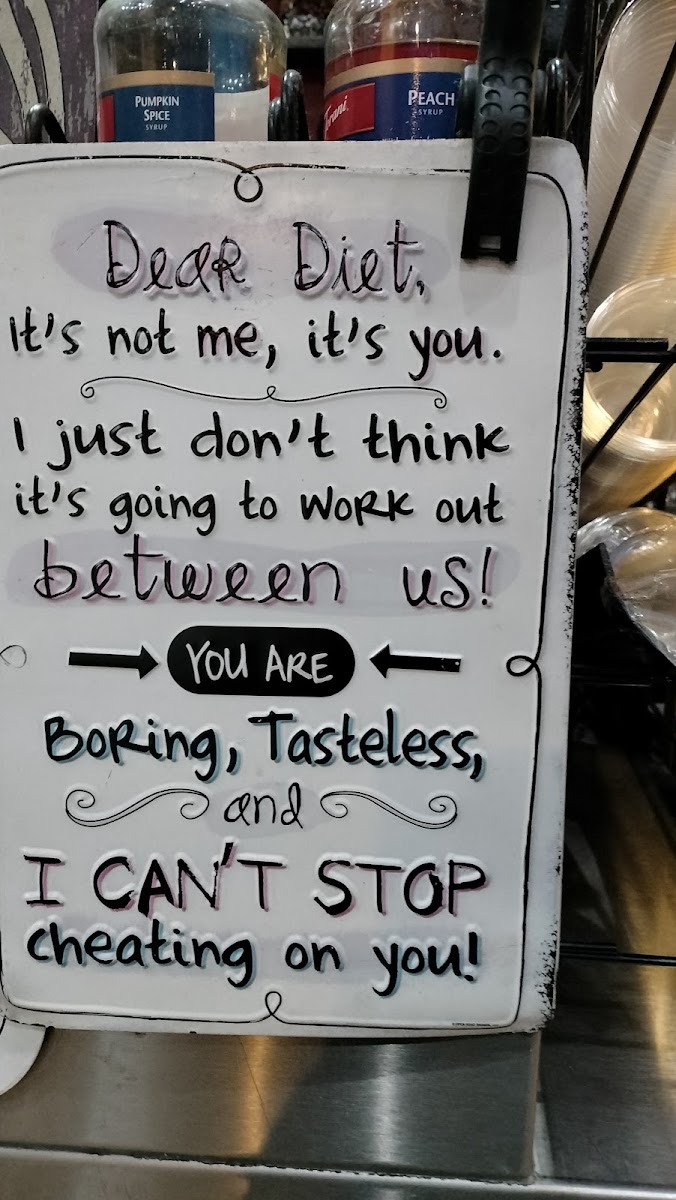 PUMPKIN
SPICE
SYRUP
Torani
PEACH
SYRUP
Dear Diet,
It's not me, it's you.
I just don't think
it's going to work out
between us!
YOU ARE
Boring, Tasteless,
and
I CAN'T STOP
cheating on you!